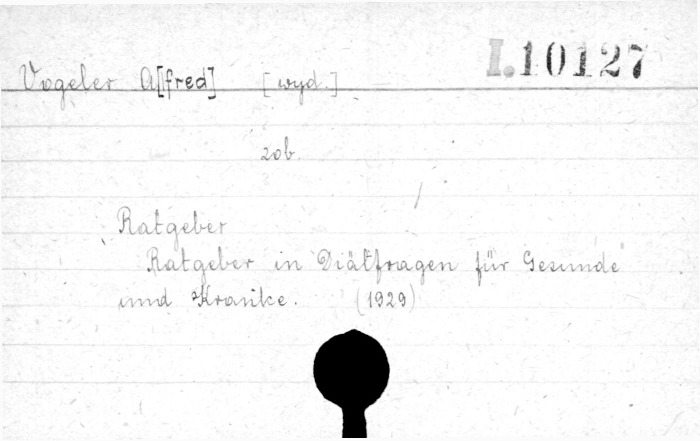 I.10127
Vogeler A[fred] [wyd.]
zob.
Ratgeber
Ratgeber in Diätfragen für Gesunde
und Kranke. (1929)